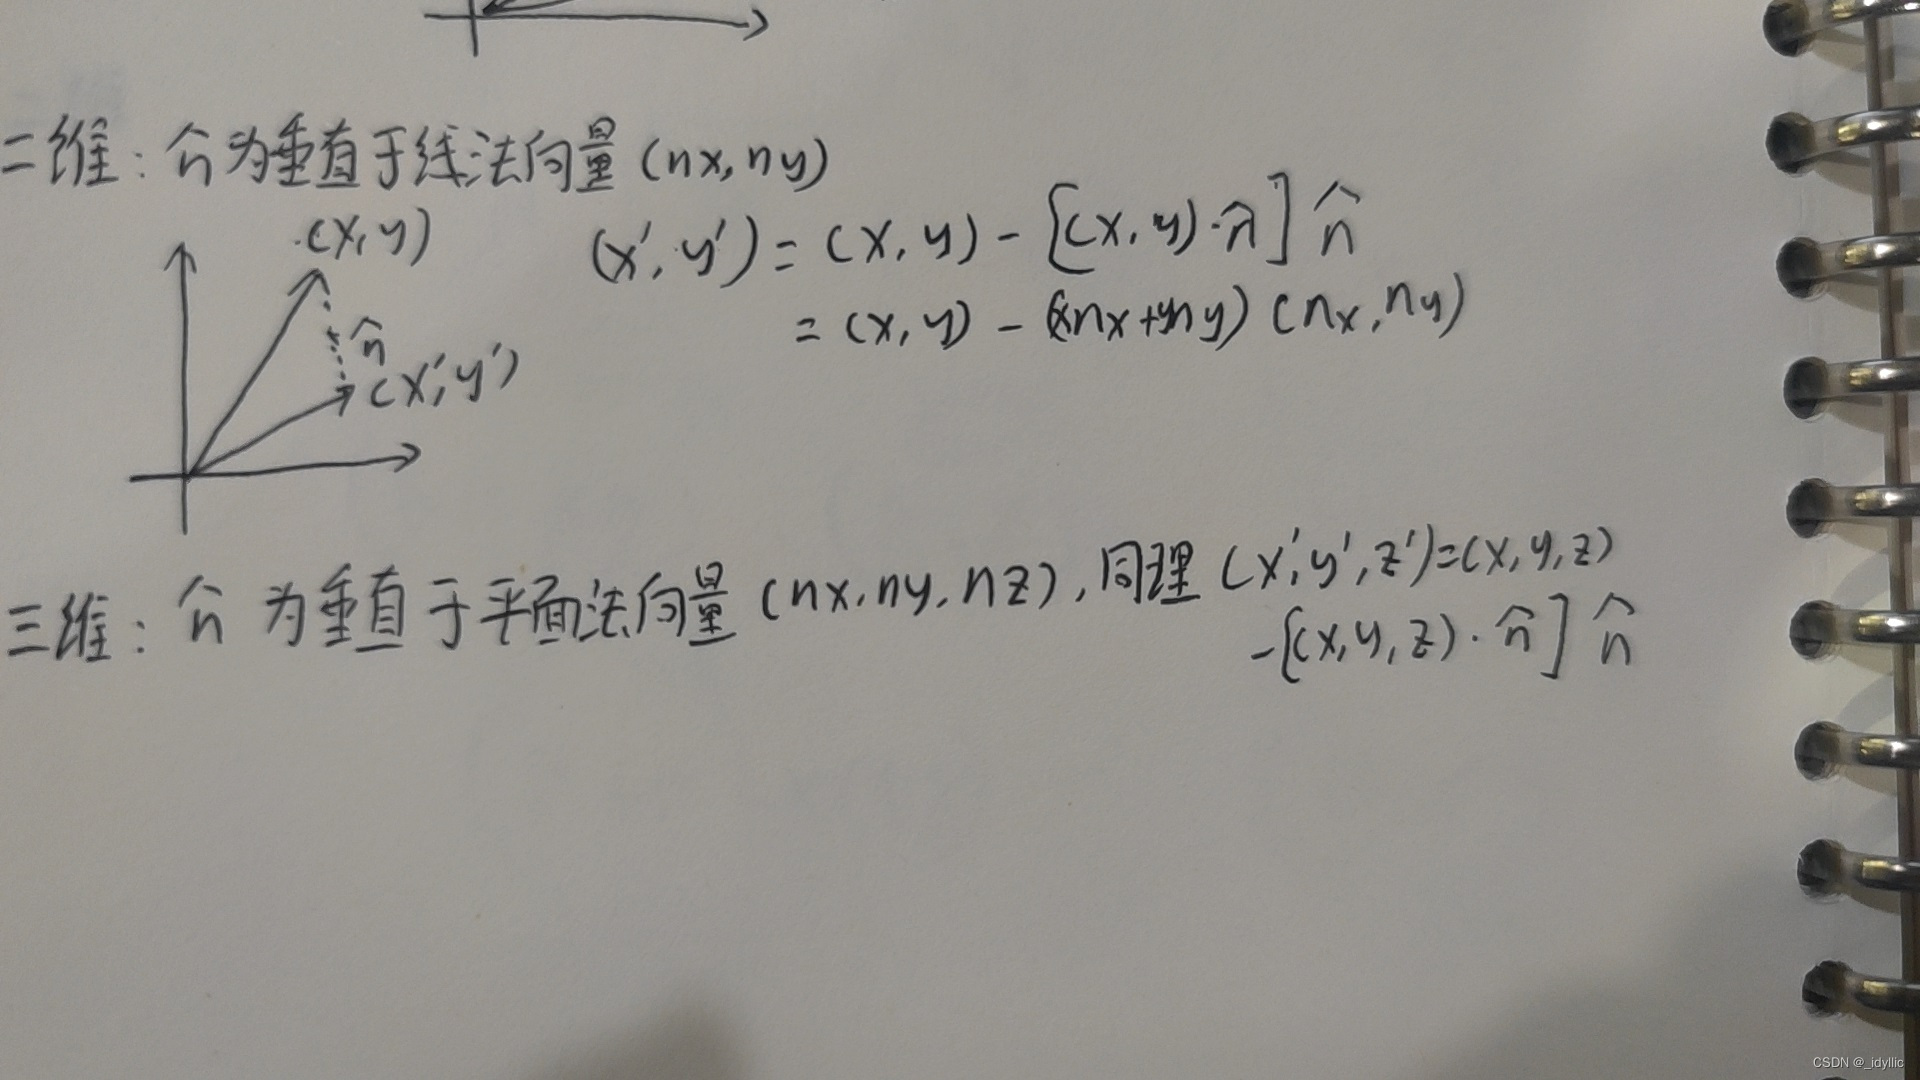 二维: n̂为垂直于线法向量(nx,ny)
(x,y)
(x',y')=(x,y)-[(x,y)·n̂]n̂
=(x,y)-(xnx+yny)(nx,ny)
n̂
(x',y')
三维: n̂为垂直于平面法向量(nx,ny,nz),同理(x',y',z')=(x,y,z)
-[(x,y,z)·n̂]n̂
CSDN @_idyllic